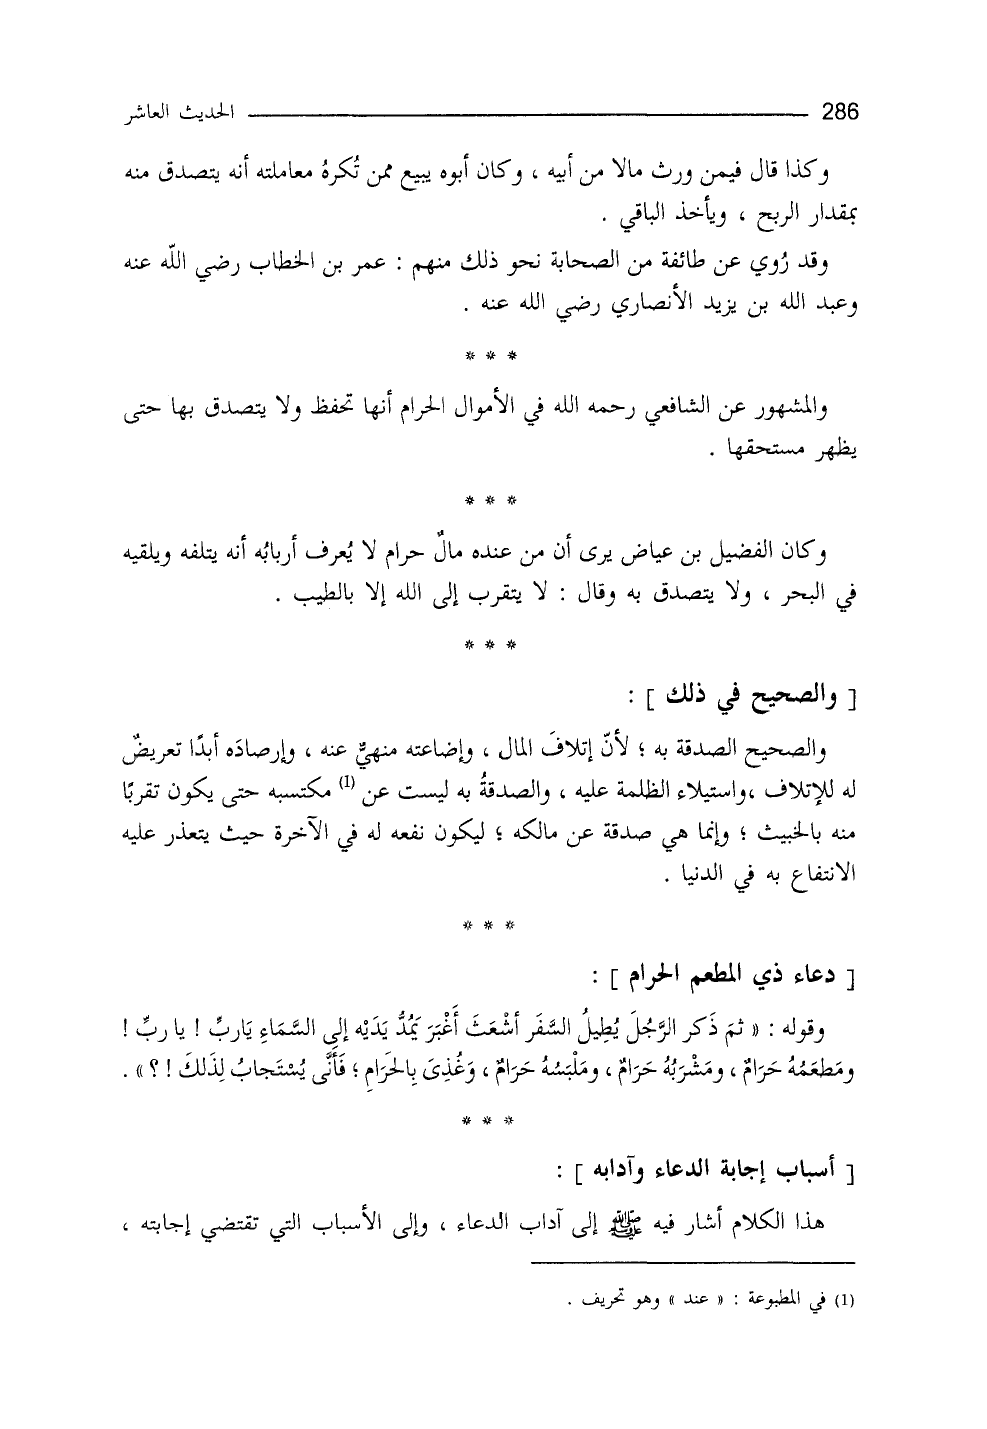 286 الحديث العاشر
وكذا قال فيمن ورث مالا من أبيه ، وكان أبوه يبيع ممن تُكرهُ معاملته أنه يتصدق منه
بمقدار الربح ، ويأخذ الباقي .
وقد رُوي عن طائفة من الصحابة نحو ذلك منهم : عمر بن الخطاب رضي اللّه عنه
وعبد الله بن يزيد الأنصاري رضي الله عنه .
* * *
والمشهور عن الشافعي رحمه الله في الأموال الحرام أنها تحفظ ولا يتصدق بها حتى
يظهر مستحقها .
* * *
وكان الفضيل بن عياض يرى أن من عنده مالٌ حرام لا يُعرف أربابُه أنه يتلفه ويلقيه
في البحر ، ولا يتصدق به وقال : لا يتقرب إلى الله إلا بالطيب .
* * *
[ والصحيح في ذلك ] :
والصحيح الصدقة به ؛ لأنّ إتلافَ المال ، وإضاعته منهيٌّ عنه ، وإرصادَه أبدًا تعريضٌ
له للإتلاف ،واستيلاء الظلمة عليه ، والصدقةُ به ليست عن (1) مكتسبه حتى يكون تقربًا
منه بالخبيث ؛ وإنما هي صدقة عن مالكه ؛ ليكون نفعه له في الآخرة حيث يتعذر عليه
الانتفاع به في الدنيا .
* * *
[ دعاء ذي المطعم الحرام ] :
وقوله : « ثمَ ذَكر الرَّجُلَ يُطِيلُ السَّفَر أشْعَثَ أَغْبَرَ يَمُدُّ يَدَيْه إلى السَّمَاءِ يَاربِّ ! يا ربِّ !
ومَطعَمُهُ حَرَامٌ ، ومَشْرَبُهُ حَرَامٌ ، ومَلْبَسُهُ حَرَامٌ ، وَغُذِىَ بِالحَرَامِ ؛ فَأَنَّى يُسْتَجابُ لِذَلكَ ! ؟» .
* * *
[ أسباب إجابة الدعاء وآدابه ] :
هذا الكلام أشار فيه ﷺ إلى آداب الدعاء ، وإلى الأسباب التي تقتضي إجابته ،
(1) في المطبوعة : « عند » وهو تحريف .